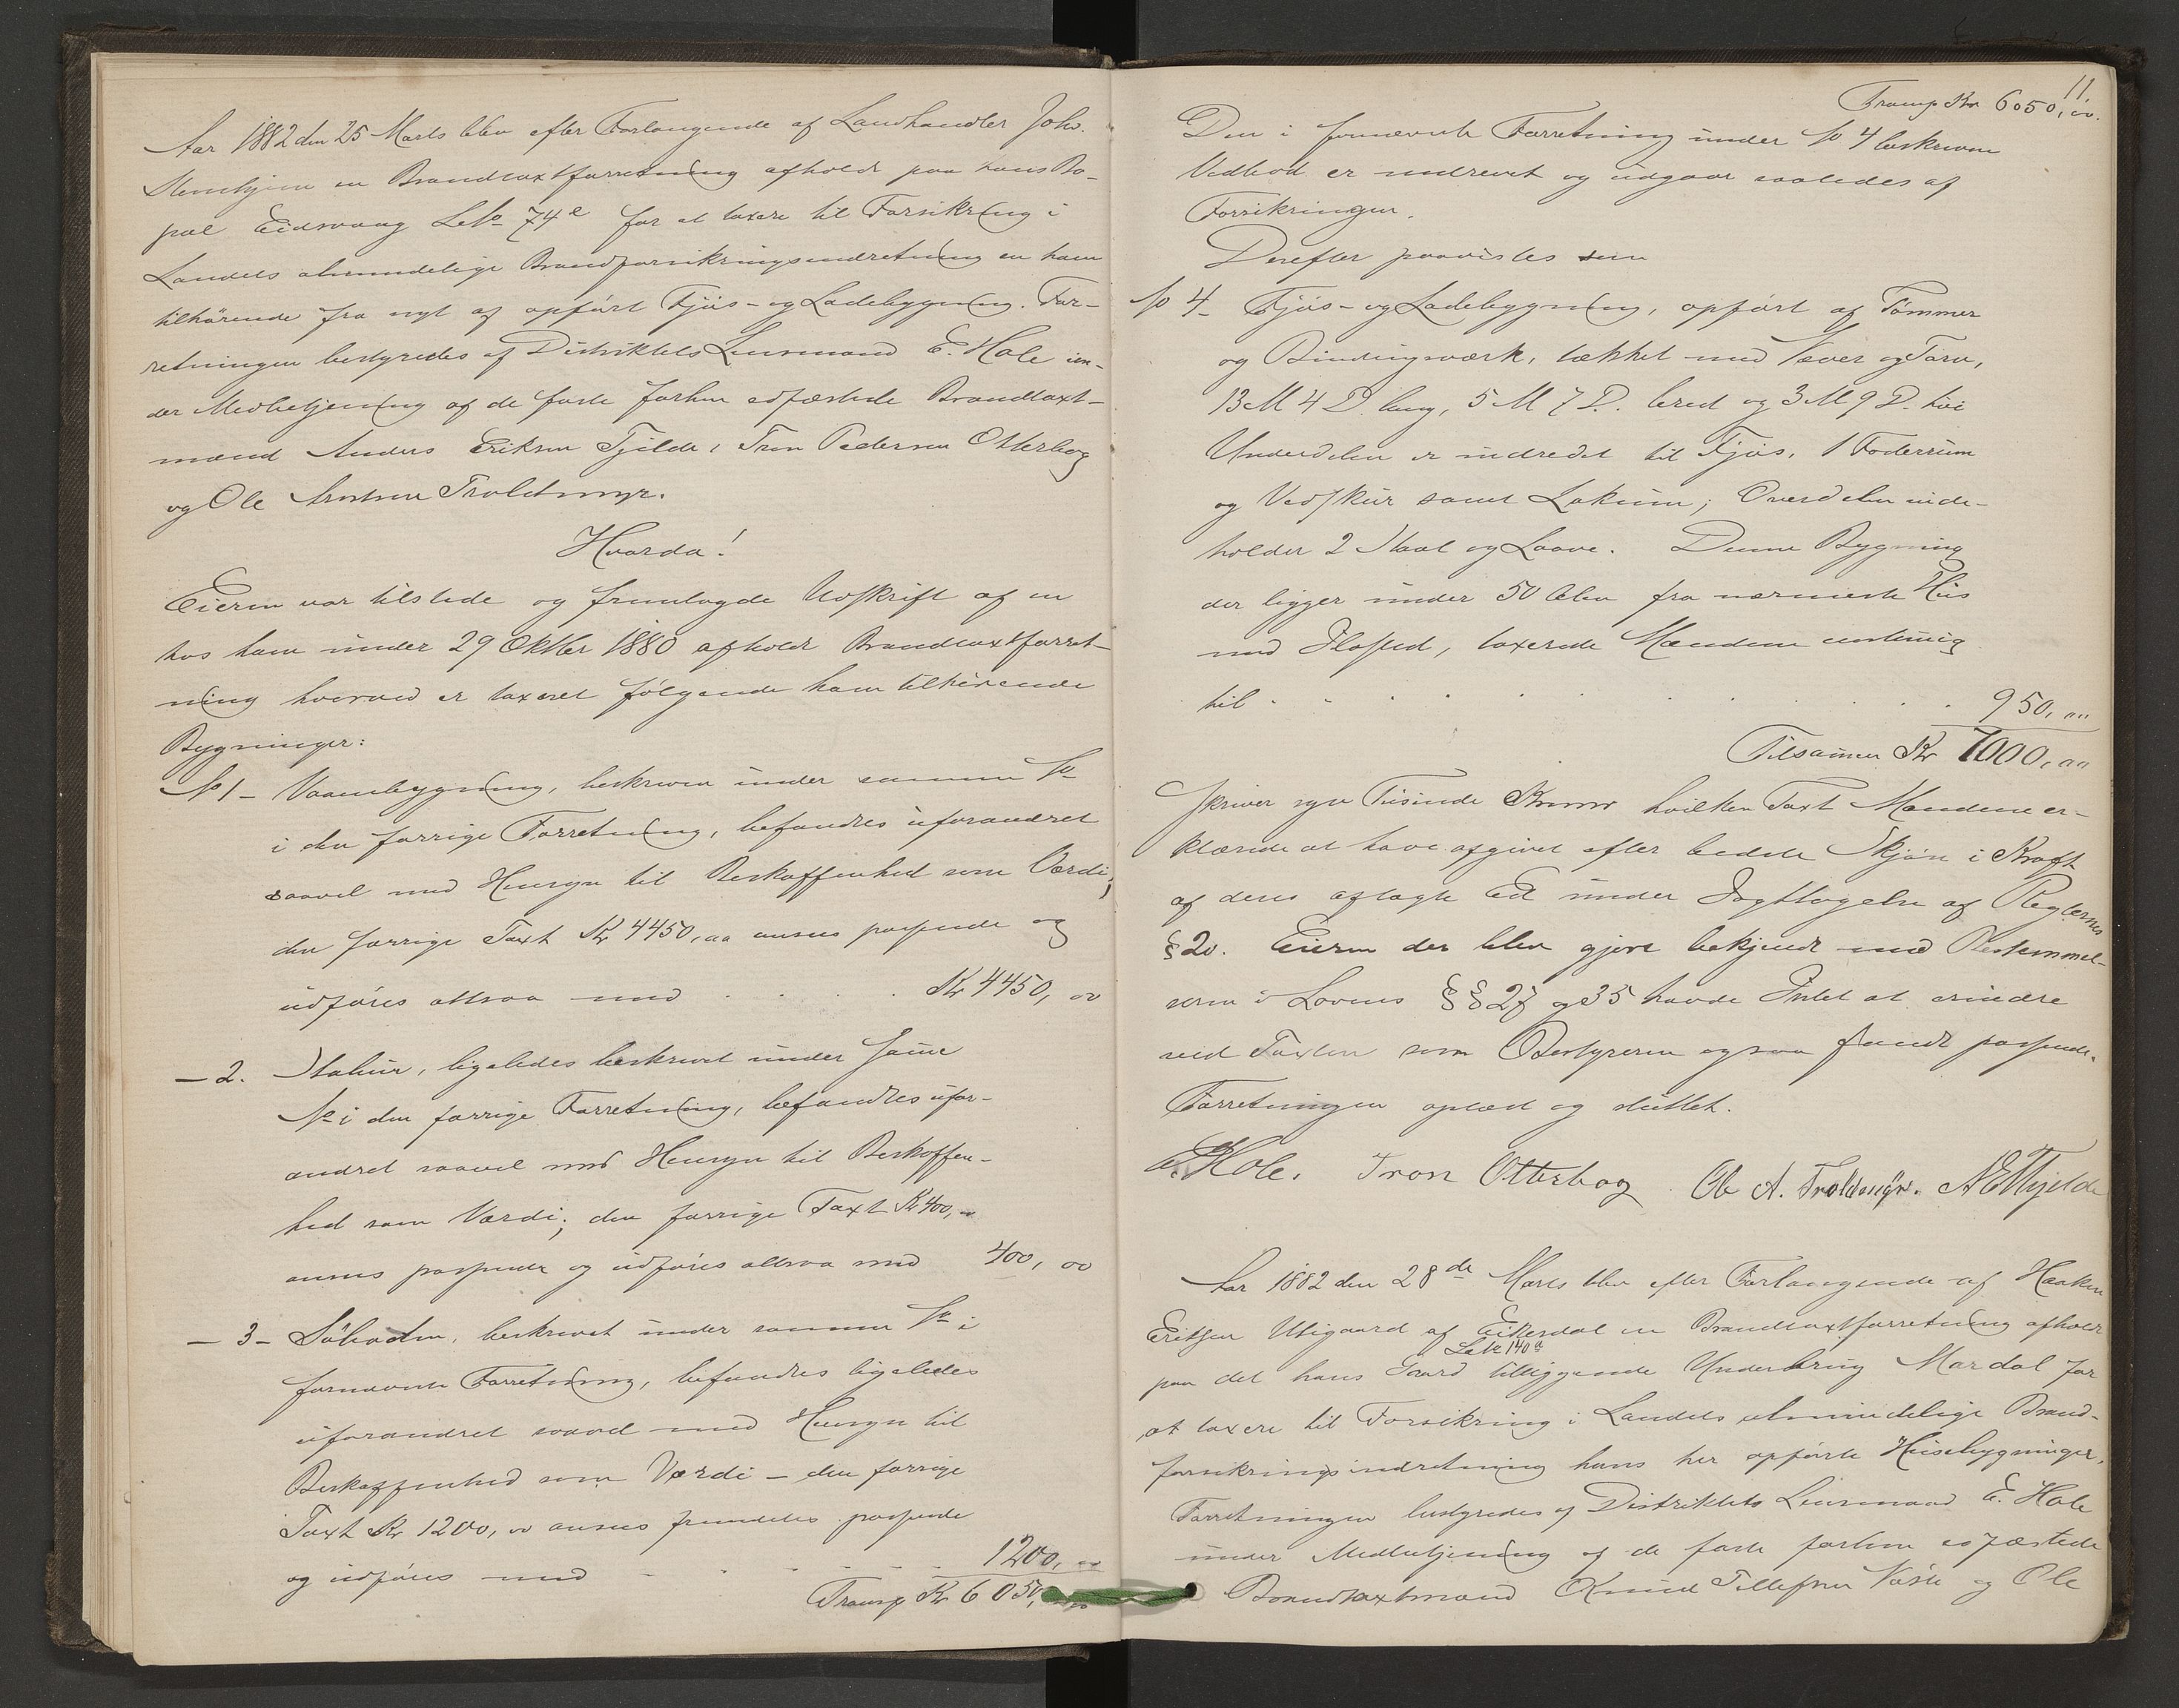 Aar 1882 den 25 Marts blev efter Forlangende af Landhandler Joh.
Stenhjem en Brandtaxtforretning afholdt paa hans Bo-
pæl Eidsvaag Løbo 74e for at taxere til Forsikring i
Landets almindelige Brandforsikringsindretning en ham
tilhørende fra nyt af opført Fjøs- og Ladebygning. For-
retningen bestyredes af Distriktets Lensmand E. Hole un-
der Medbetjening af de faste forhen edfæstede Brandtaxt-
mænd Anders Eriksen Tjelde, Tron Pedersen Otterbog
og Ole Troldmyr.
Hvorda!
Eieren var tilstede og fremlagde Udskrift af en
hos ham under 29 Oktbr 1880 afholdt Brandtaxtforret-
ning hvorved er taxeret følgende ham tilhørende
Bygninger:
No 1 - Vaanebygning, beskreven under samme No
i den forrige Forretning, befandtes uforandret
saavel med Hensyn til Beskaffenhed som Værdi;
den forrige Taxt Kr 4450,00 ansees passende og
udføres altsaa med . . . . Kr 4450, 00
- 2. Stabur, ligeledes beskrevet under samme
No i den forrige Forretning, befandtes ufor-
andret saavel med Hensyn til Beskaffen-
hed som Værdi; den forrige Taxt Kr 400,00
ansees passende og udføres altsaa med 400, 00
- 3 - Søboden, beskrevet under samme No i
fornævnte Forretning, befandtes ligeledes
uforandret saavel med Hensyn til
Beskaffenhed som Værdi - den forrige
Taxt Kr 1200, 00 ansees fremdeles passende
og udføres med - - - - 1200, 00
Transp. Kr 6050,
11.
Transp. Kr 6050, 00.
Den i fornævnte Forretning under No 4 beskrevne
Vedbod er nedrevet og udgaar saaledes af
Forsikringen.
Derefter paavistes som
No 4 - Fjøs- og Ladebygning, opført af Tømmer
og Bindingsværk, tækket med Næver og Torv,
13 M 4 D. lang, 5 M 7 D. bred og 3 M 9 D. høi
Underdelen er indredet til Fjøs, 1 Foderrum
og Vedskur samt Lokum; Overdelen inde-
holder 2 Staal og Laave. Denne Bygning
der ligger under 50 Alen fra nærmeste Hus
med Ildsted, taxerede Mændene enstemig
til . . . . . . . . 950, 00
Tilsammen Kr 7000, 00
Skriver syv Tusinde Kroner hvilken Taxt Mændene er-
klærede at have afgivet efter bedste Skjøn i Kraft
af deres aflagte Ed under Iagttagelse af Reglernes
§ 20. Eieren der blev gjort bekjendt med Bestemmel-
serne i Lovens §§ 27 og 35 havde Intet at erindre
ved Taxten som Bestyreren ogsaa fandt passende.
Forretningen oplæst og sluttet.
E. Hole. Tron Otterbog Ole A. Troldmyr. A E Tjelde
Aar 1882 den 28de Marts blev efter Forlangende af Haaken
Eriksen Utigaard af Eikesdal en Brandtaxtforretning afholdt
Løbe 140a
paa det hans Gaard tilliggende Underbrug Mardal for
at taxere til Forsikring i Landets almindelige Brand-
forsikringsindretning hans her opførte Husebygninger.
Forretningen bestyredes af Distriktets Lensmand E. Hole
under Medbetjening af de faste forhen edfæstede
Brandtaxtmænd Knud Tellefsen Vaste og Ole